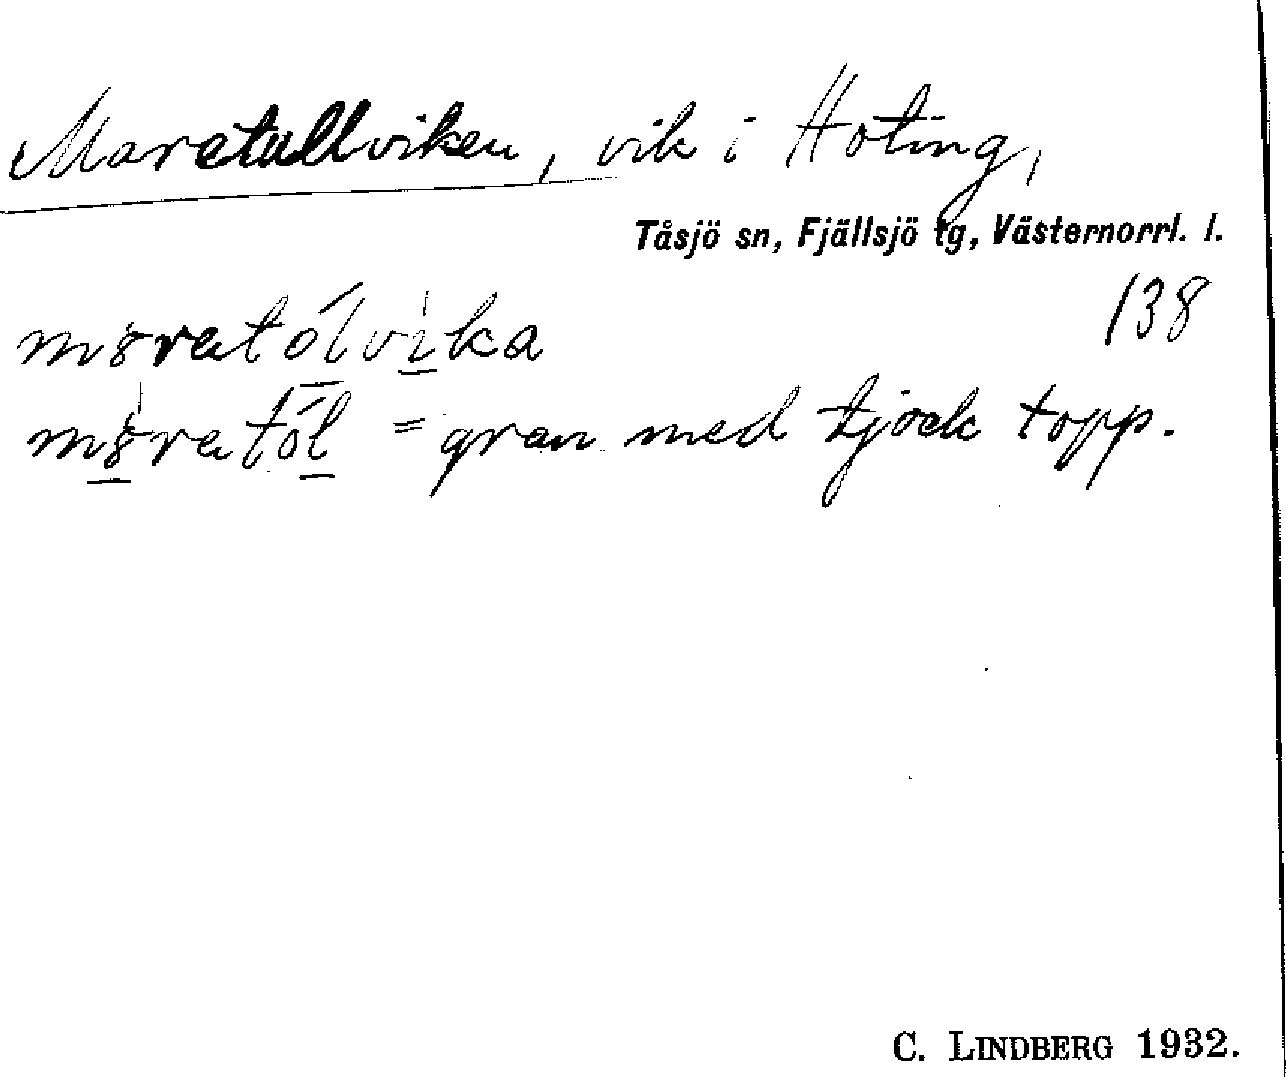 Maretallviken, vik i Hoting,
Tåsjö sn, Fjällsjö tg, Västernorrl. l.
138
= gran med tjock topp.
C. LINDBERG 1932.